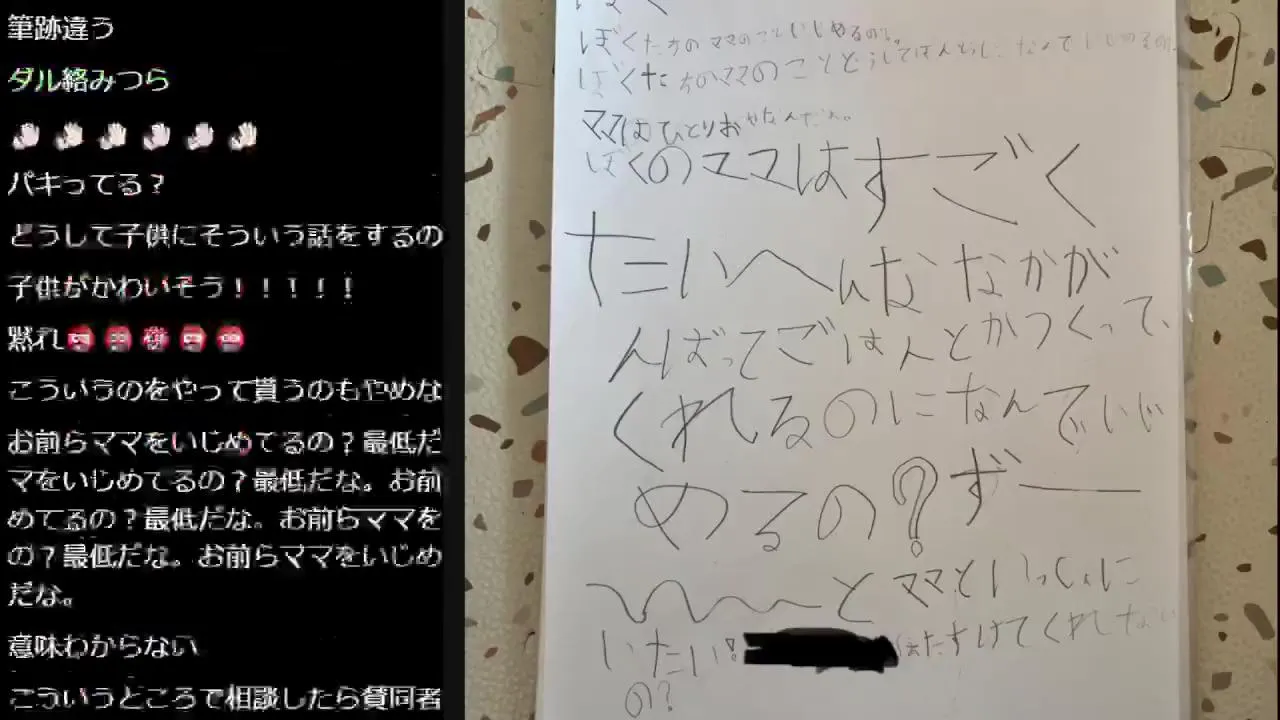 筆跡違う
ダル絡みつら
パキってる?
どうして子供にそういう話をするの
子供がかわいそう!!!!!
黙れ
こういうのをやって貰うのもやめな
お前らママをいじめてるの?最低だ
マをいじめてるの?最低だな。お前
めてるの?最低だな。お前らママを
の?最低だな。お前らママをいじめ
だな。
意味わからない
こういうところで相談したら賛同者
ぼくたちのママのこといじめるの。
ぼくたちのママのことどうして
ママはひとりおやなんだよ。
ぼくのママはすごく
たいへんななかが
んばってごはんとかつくって、
くれるのになんでいじ
めるの?ずー
〜〜〜とママといっしょに
いたい!
はたすけてくれしない
の?